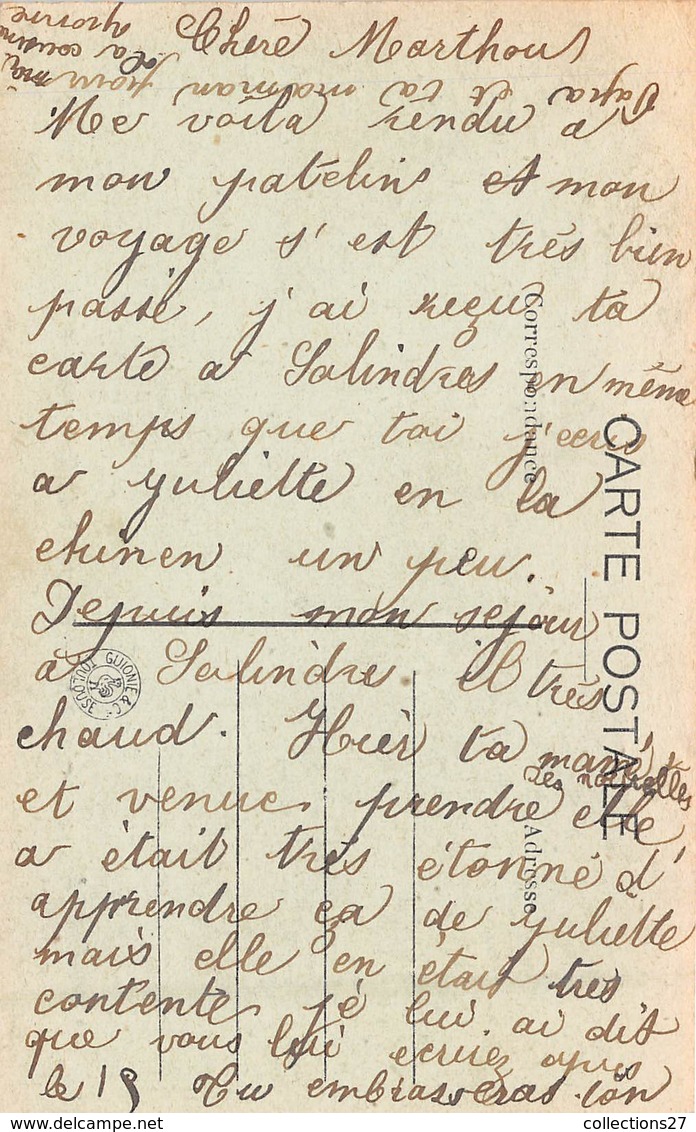 Cherè Marthou
Me voila rendu a
mon patelin et mon
voyage s'est très bien
passè, j'ai reçu ta
carte a Salindres en même
temps que toi j'ecris
a yuliette en la
chinen un peu.
Depuis mon sejour
a Salindre il très
chaud. Hièr ta mami
et venue prendre des nouvelles elle
a ètait très étonné d'
apprendre ça de yuliette
mais elle en ètait très
contente je lui ai dit
que vous lui ecriez apres
le 15 Tu embrasseras ton
Papa et ta maman pour moi
La cousine
yvonne
CARTE POSTALE
Correspondance
Adresse
TOULOUSE
GUIONIE & C
collections27